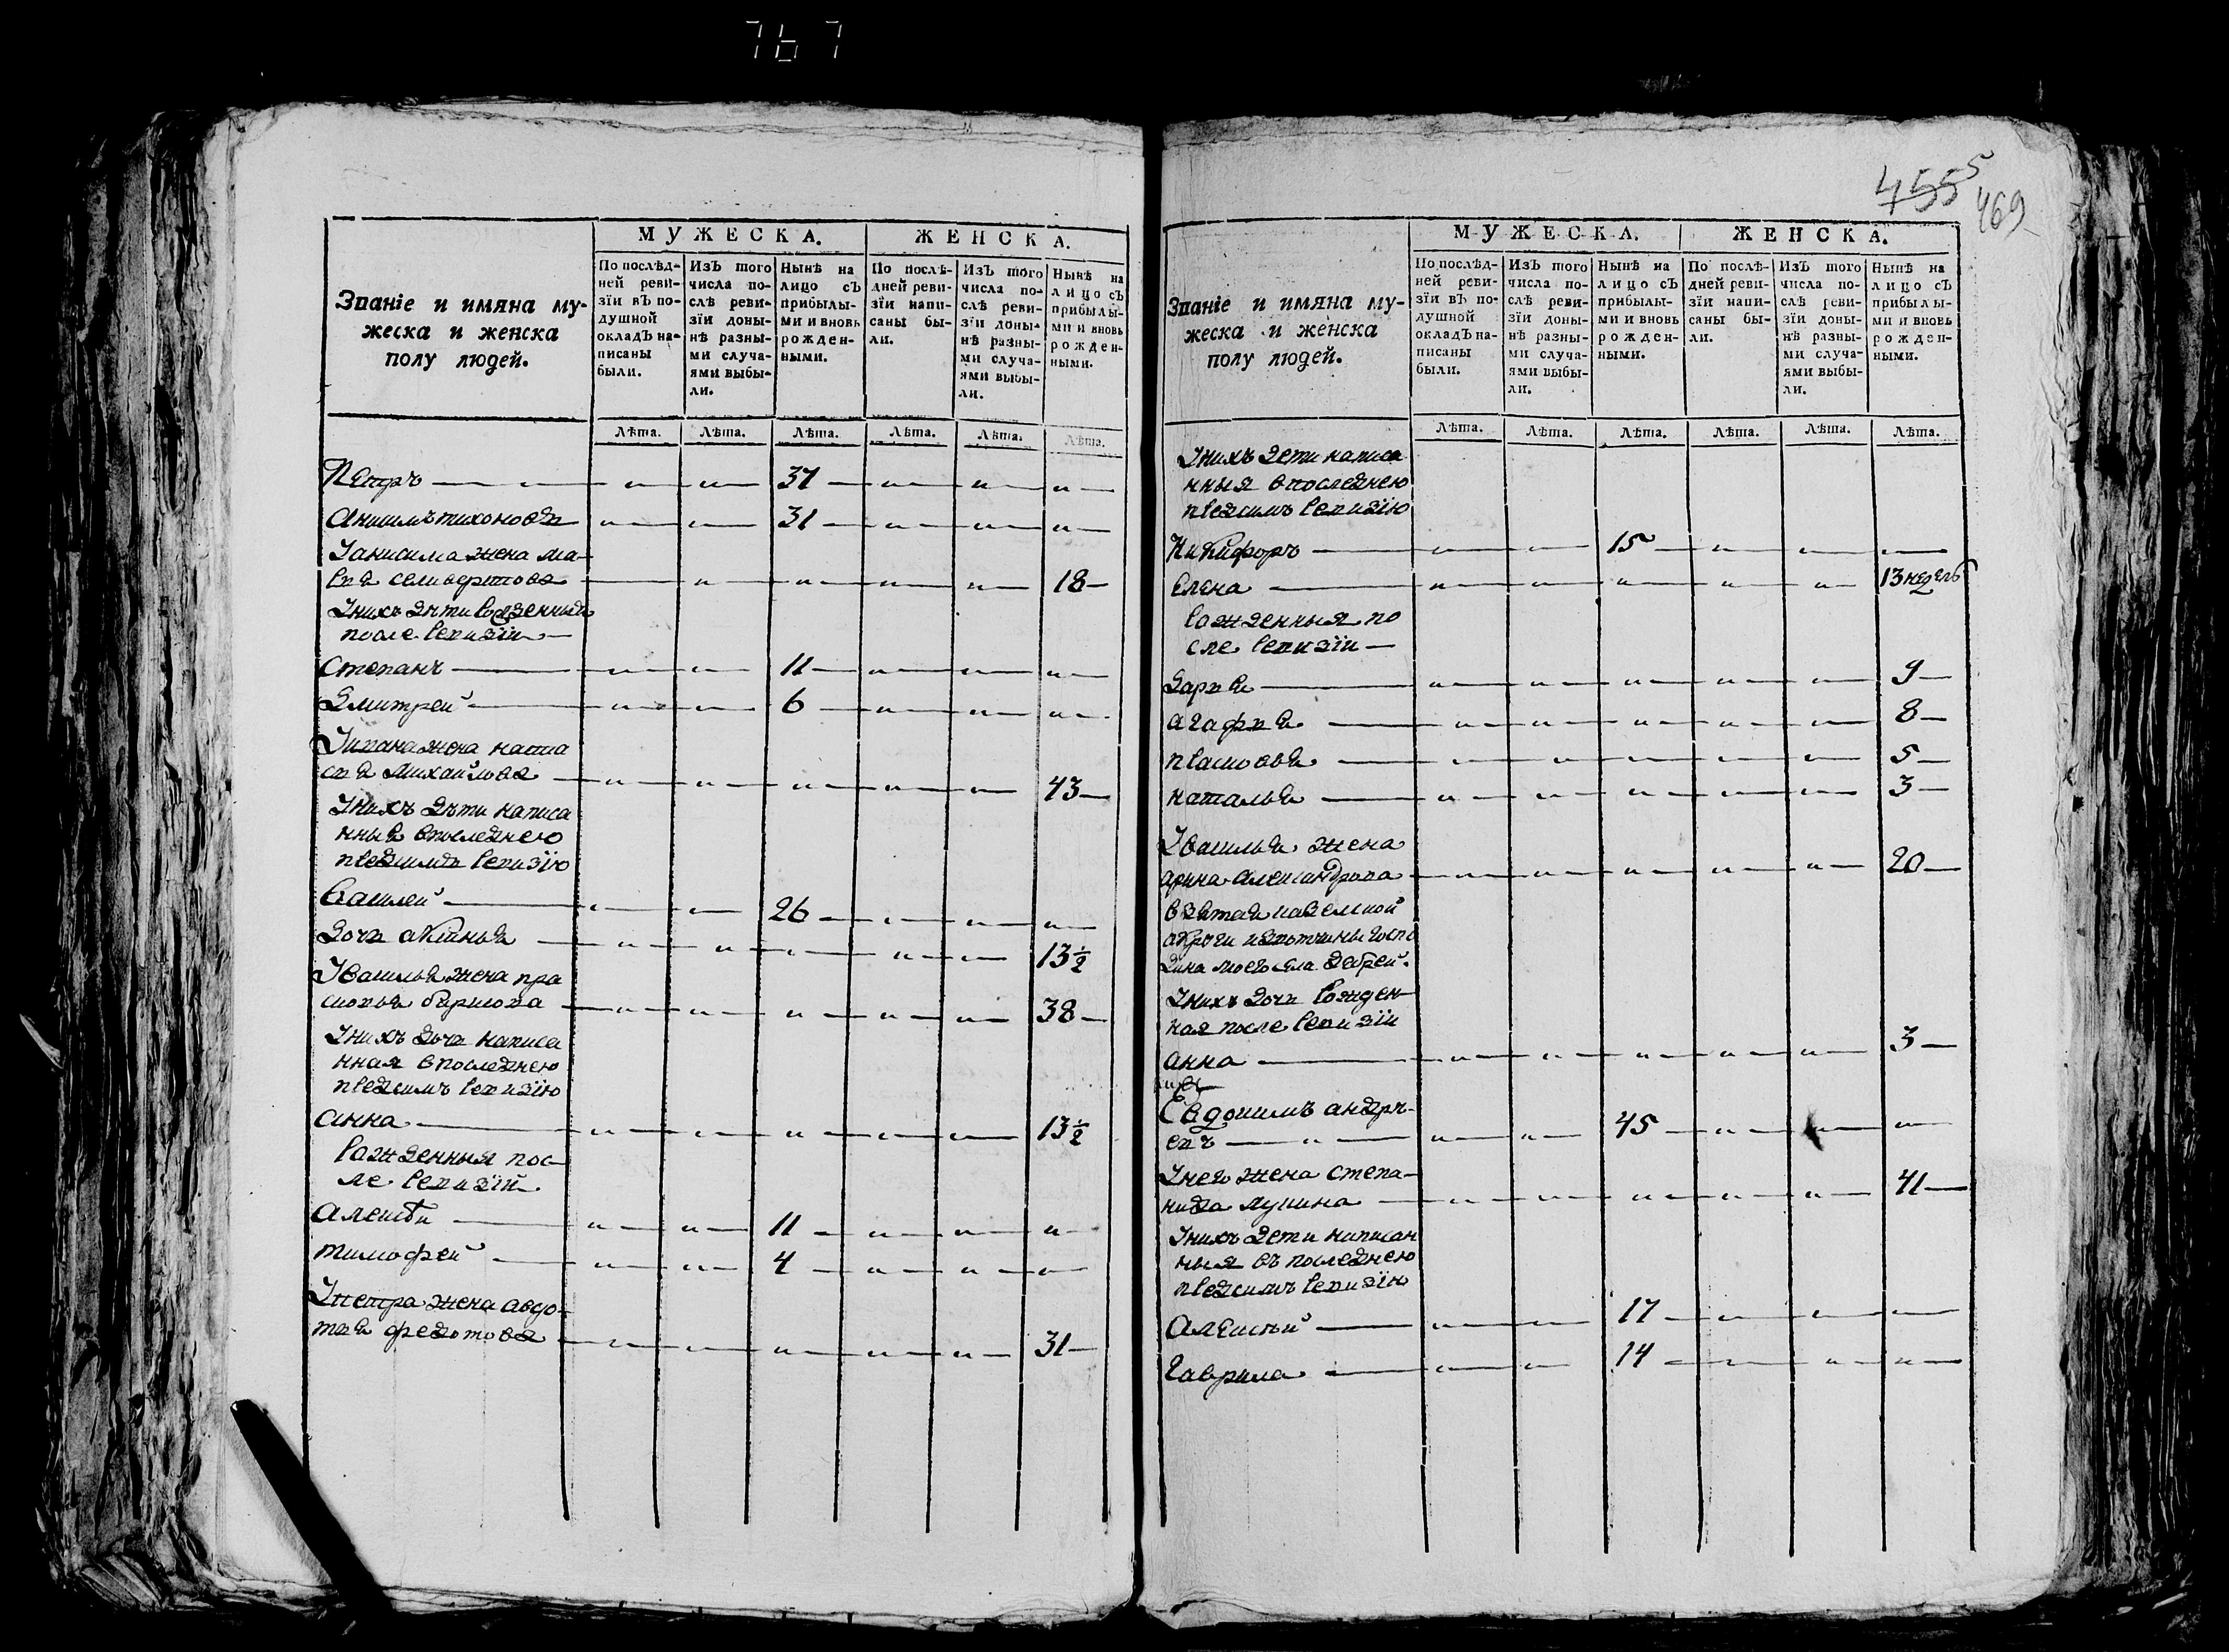 767
4555
469
МУЖЕСКА.
ЖЕНСКА.
Званіе и имяна му-
жеска и женска
полу людей.
По послѣд-
ней реви-
зїи въ по-
душной
окладъ на-
писаны
были.
Изъ того
числа по-
слѣ реви-
зїи доны-
нѣ разны-
ми случа-
ями выбы-
ли.
Нынѣ на
лицо съ
прибылы-
ми и вновь
рожден-
ными.
По послѣ-
дней реви-
зїи напи-
саны бы-
ли.
Изъ того
числа по-
слѣ реви-
зїи доны-
нѣ разны-
ми случа-
ями выбы-
ли.
Нынѣ на
лицо съ
прибылы-
ми и вновь
рожден-
ными.
Лѣта. Лѣта. Лѣта. Лѣта. Лѣта. Лѣта.
Петръ 37
Анисимъ тихоновъ 31
Уанисима жена ма-
вра селиверстова 18
Унихъ дѣти рожденныя
после ревизіи
Степанъ 11
Дмитрей 6
Уивана жена наста
сья Михайлова 43
Унихъ дѣти написа
нныя впоследнею
предсимъ ревизїю
Василей 26
Дочь акулинья 13½
Увасилья жена пра
сковья борисова 38
Унихъ дочь написа
нная впоследнею
предсимъ ревизїю
анна 13½
рожденныя пос
ле ревизїи
алексѣи 11
тимофей 4
Упетра жена авдо-
тья федотова 31
МУЖЕСКА.
ЖЕНСКА.
Званіе и имяна му-
жеска и женска
полу людей.
По послѣд-
ней реви-
зїи въ по-
душной
окладъ на-
писаны
были.
Изъ того
числа по-
слѣ реви-
зїи доны-
нѣ разны-
ми случа-
ями выбы-
ли.
Нынѣ на
лицо съ
прибылы-
ми и вновь
рожден-
ными.
По послѣ-
дней реви-
зїи напи-
саны бы-
ли.
Изъ того
числа по-
слѣ реви-
зїи доны-
нѣ разны-
ми случа-
ями выбы-
ли.
Нынѣ на
лицо съ
прибылы-
ми и вновь
рожден-
ными.
Лѣта. Лѣта. Лѣта. Лѣта. Лѣта. Лѣта.
Унихъ дети написа
нныя впоследнею
предсимъ ревизїю
Никифоръ 15
елена 13 недель
рожденныя по
сле ревизїи
дарья 9
агафья 8
прасковья 5
наталья 3
Увасилья жена
арина александрова 20
взятая
Унихъ дочь рожден
ная после ревизїи
анна 3
Евдокимъ андрѣ-
евъ 45
Унего жена степа-
нида лукина 41
Унихъ дети написан
ныя въ последнею
предсимъ ревизїю
Алексѣй 17
Гаврила 14